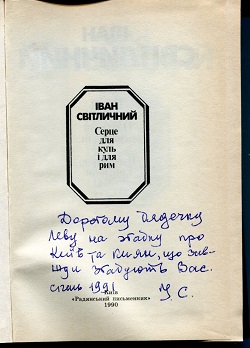 ІВАН
СВІТЛИЧНИЙ
Серце
для
куль
і для
рим
Дорогому Дядечку
Леву на згадку про
Київ та киян, що зав-
жди згадують Вас.
січень 1991 І. С.
Київ
«Радянський письменник»
1990